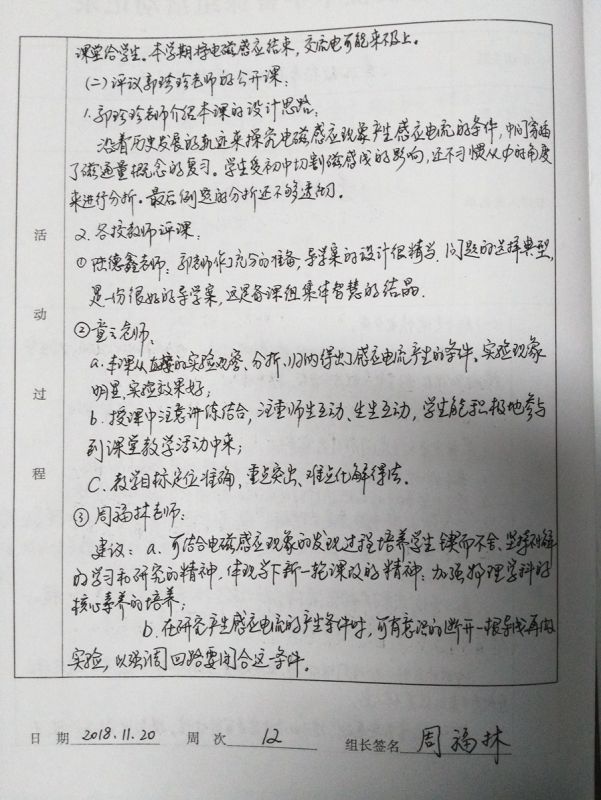 课堂给学生。本学期将电磁感应结束，交流电可能来不及上。
(二)评议郭珍珍老师的公开课：
1.郭珍珍老师介绍本课的设计思路：
沿着历史发展的轨迹来探究电磁感应现象产生感应电流的条件，中间穿插
了磁通量概念的复习。学生受初中切割磁感线的影响，还不习惯从Φ的角度
来进行分析。最后例题的分析还不够透彻。
2.各校教师评课：
①陈德鑫老师：郭老师作了充分的准备，导学案的设计很精当，问题的选择典型，
是一份很好的导学案，这是备课组集体智慧的结晶.
②童云老师：
a.本课从直接的实验观察、分析、归纳得出了感应电流产生的条件。实验现象
明显，实验效果好；
b.授课中注意讲练结合，注重师生互动、生生互动，学生能积极地参与
到课堂教学活动中来；
C.教学目标定位准确，重点突出、难点化解得法。
③周福林老师：
建议：a.可结合电磁感应现象的发现过程培养学生锲而不舍、坚持
的学习和研究的精神，体现当下新一轮课改的精神：加强物理学科的
核心素养的培养；
b.在研究产生感应电流的产生条件时，可有意识的断开一根导线再做
实验，以强调回路要闭合这一条件。
活动过程
日期 2018.11.20 周次 12 组长签名 周福林